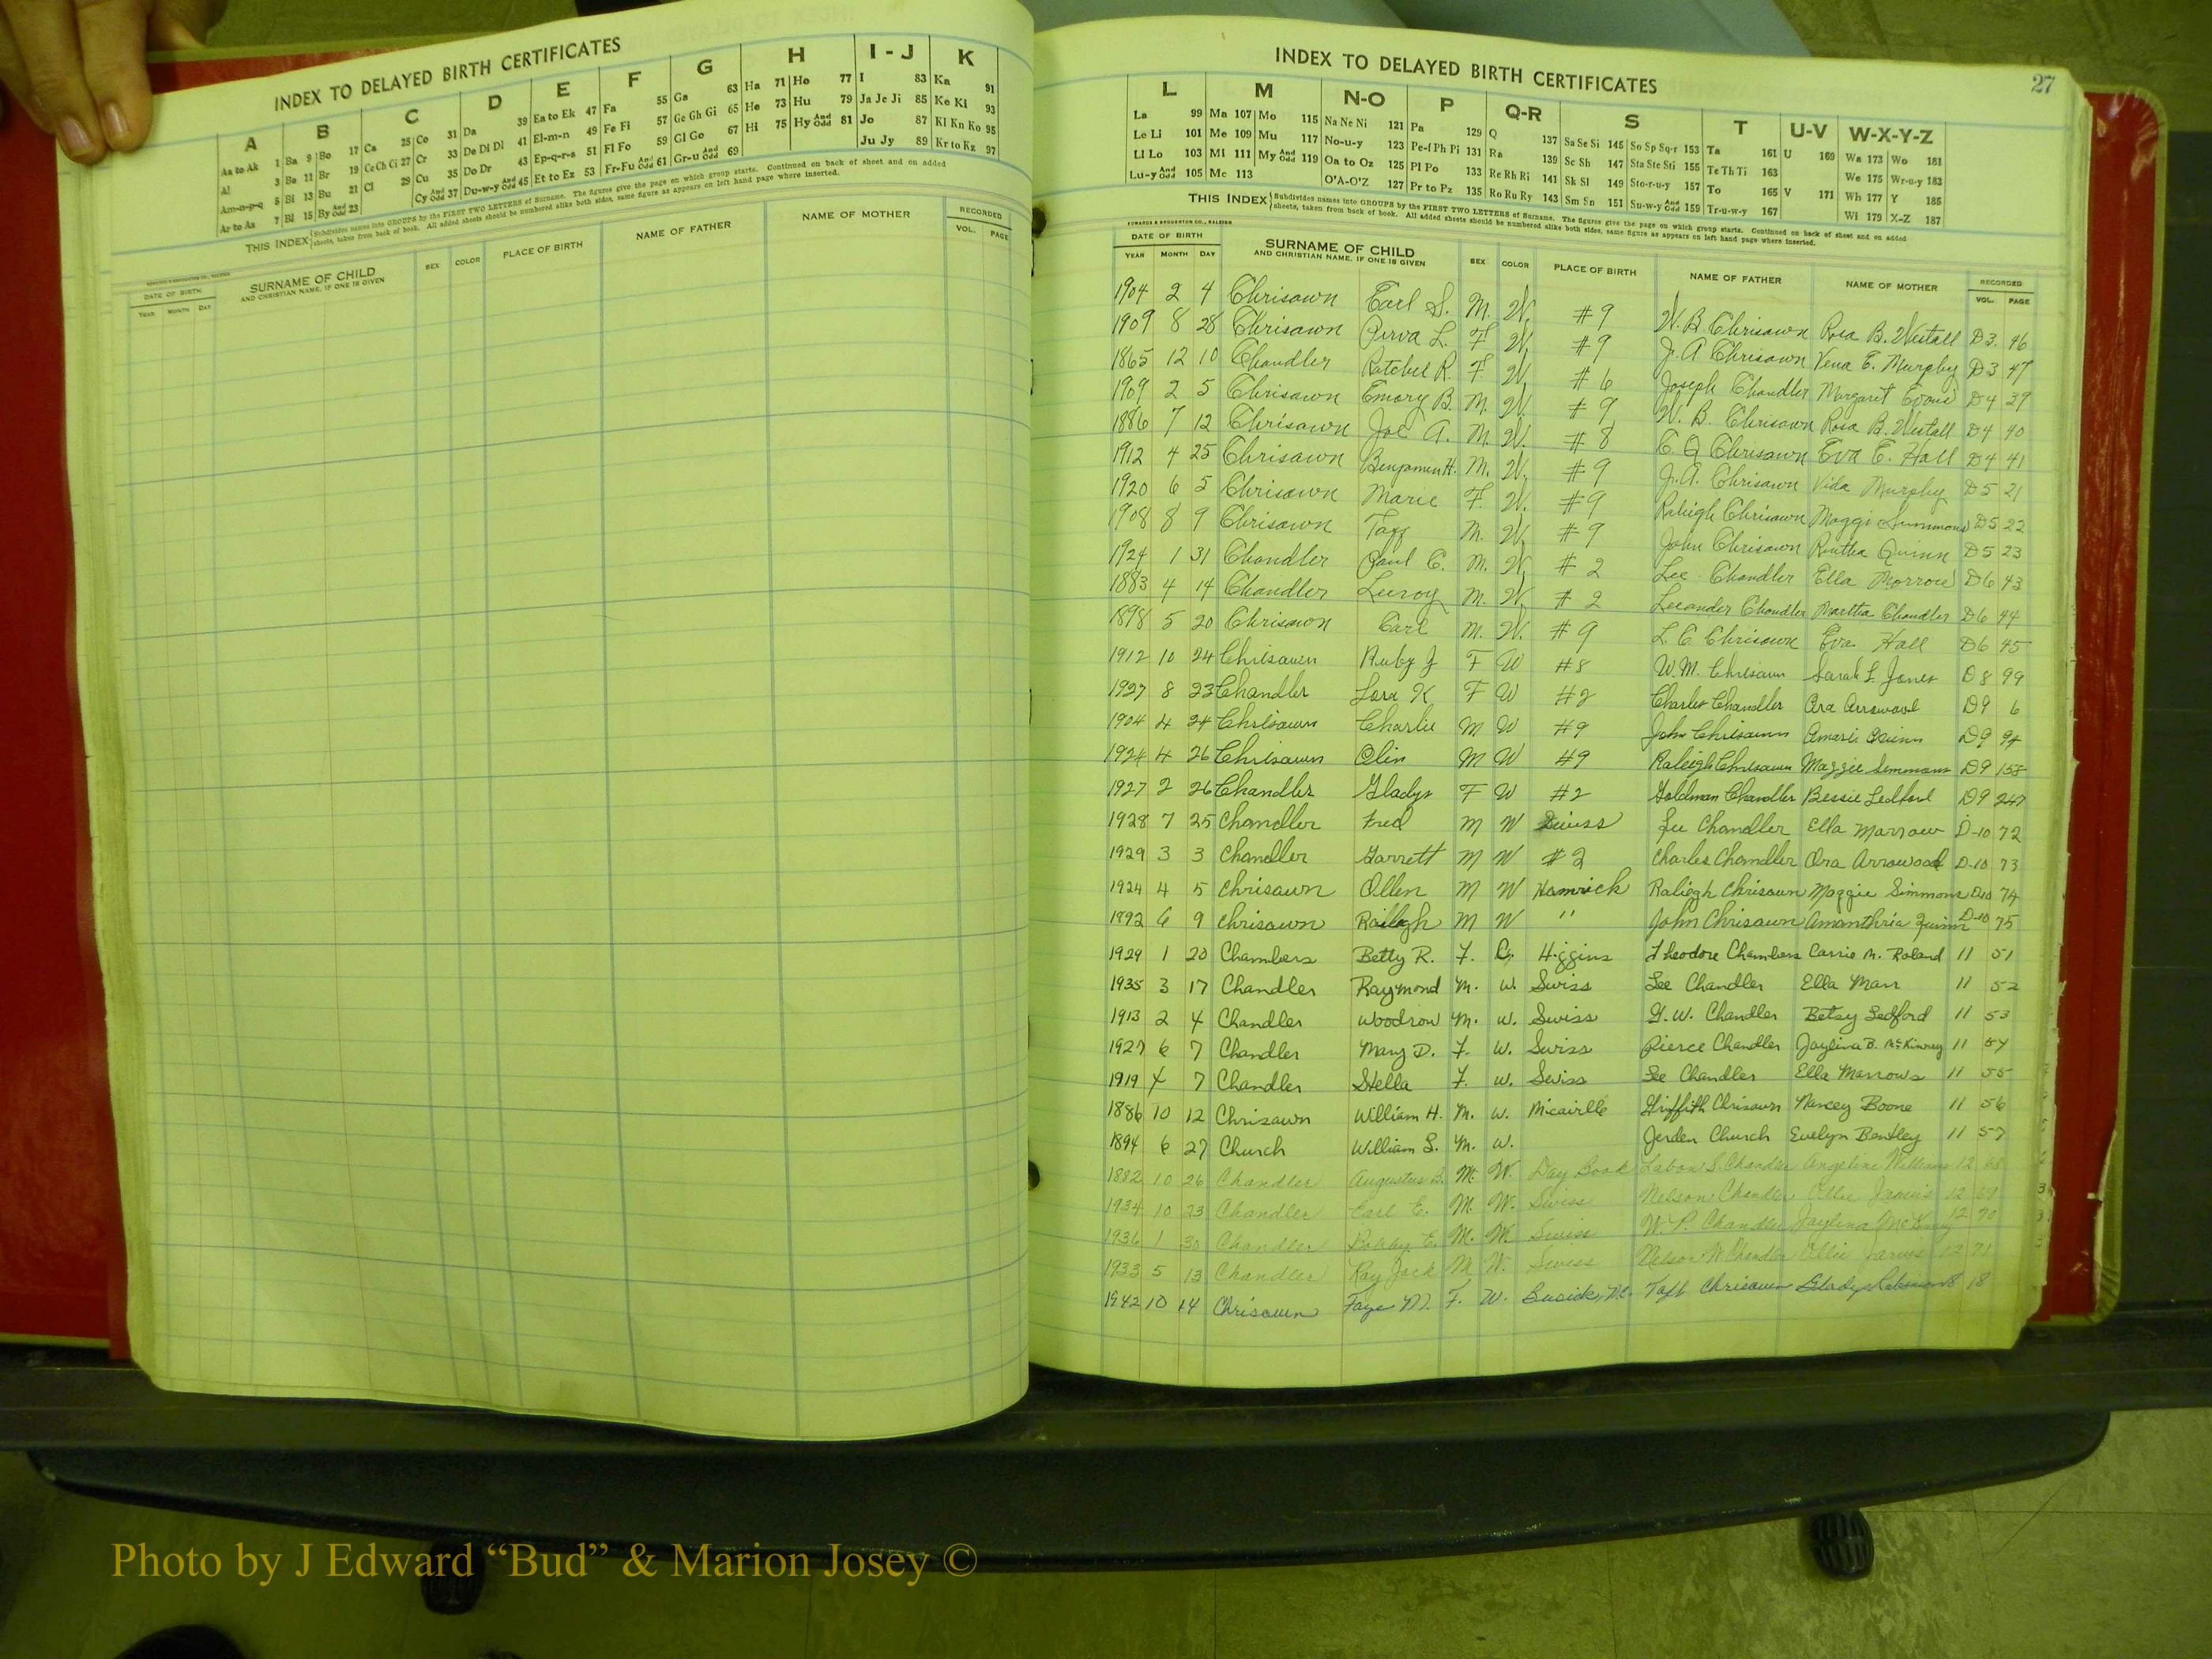 INDEX TO DELAYED BIRTH CERTIFICATES
A B C D E F G H I - J K
Aa to Ak 1 Ba 9 Bo 17 Ca 25 Co 31 Da 39 Ea to Ek 47 Fa 55 Ga 63 Ha 71 Ho 77 I 83 Ka 91
Al 3 Be 11 Br 19 Ce Ch Ci 27 Cr 33 De Di Dl 41 El-m-n 49 Fe Fi 57 Ge Gh Gi 65 He 73 Hu 79 Ja Je Ji 85 Ke Ki 93
Am-n-p-q 5 Bi 13 Bu 21 Cl 29 Cu 35 Do Dr 43 Ep-q-r-s 51 Fl Fo 59 Gl Go 67 Hi 75 Hy And Odd 81 Jo 87 Kl Kn Ko 95
Ar to Az 7 Bl 15 By And Odd 23 Cy And Odd 37 Du-w-y And Odd 45 Et to Ez 53 Fr-Fu And Odd 61 Gr-u And Odd 69 Ju Jy 89 Kr to Kz 97
THIS INDEX Subdivides names into GROUPS by the FIRST TWO LETTERS of Surname. The figures give the page on which group starts. Continued on back of sheet and on added
sheets, taken from back of book. All added sheets should be numbered alike both sides, same figure as appears on left hand page where inserted.
DATE OF BIRTH SURNAME OF CHILD SEX COLOR PLACE OF BIRTH NAME OF FATHER NAME OF MOTHER RECORDED
YEAR MONTH DAY AND CHRISTIAN NAME, IF ONE IS GIVEN VOL. PAGE
27
INDEX TO DELAYED BIRTH CERTIFICATES
L M N-O P Q-R S T U-V W-X-Y-Z
La 99 Ma 107 Mo 115 Na Ne Ni 121 Pa 129 Q 137 Sa Se Si 145 So Sp Sq-r 153 Ta 161 U 169 Wa 173 Wo 181
Le Li 101 Me 109 Mu 117 No-u-y 123 Pe-f Ph Pi 131 Ra 139 Sc Sh 147 Sta Ste Sti 155 Te Th Ti 163 We 175 Wr-u-y 183
Ll Lo 103 Mi 111 My And Odd 119 Oa to Oz 125 Pl Po 133 Re Rh Ri 141 Sk Sl 149 Sto-r-u-y 157 To 165 V 171 Wh 177 Y 185
Lu-y And Odd 105 Mc 113 O'A-O'Z 127 Pr to Pz 135 Ro Ru Ry 143 Sm Sn 151 Su-w-y And Odd 159 Tr-u-w-y 167 Wi 179 X-Z 187
THIS INDEX Subdivides names into GROUPS by the FIRST TWO LETTERS of Surname. The figures give the page on which group starts. Continued on back of sheet and on added
sheets, taken from back of book. All added sheets should be numbered alike both sides, same figure as appears on left hand page where inserted.
EDWARDS & BROUGHTON CO., RALEIGH
DATE OF BIRTH SURNAME OF CHILD SEX COLOR PLACE OF BIRTH NAME OF FATHER NAME OF MOTHER RECORDED
YEAR MONTH DAY AND CHRISTIAN NAME, IF ONE IS GIVEN VOL. PAGE
1904 2 4 Chrisawn Earl S. M. W. #9 W. B. Chrisawn Rosa B. Westall D3 46
1909 8 28 Chrisawn Perva L. F W. #9 J. A Chrisawn Vena E. Murphy D3 47
1865 12 10 Chandler Ratchel R. F W #6 Joseph Chandler Margaret Evans D4 39
1909 2 5 Chrisawn Emory B. M. W. #9 W. B. Chrisawn Rosa B. Westall D4 40
1886 7 12 Chrisawn Joe A. M. W. #8 C. Chrisawn Eva E. Hall D4 41
1912 4 25 Chrisawn Benjamin H. M. W. #9 J. A. Chrisawn Vida Murphy D5 21
1920 6 5 Chrisawn Marie F. W. #9 Raleigh Chrisawn Maggi Simmons D5 22
1908 8 9 Chrisawn Taff M. W. #9 John Chrisawn Rintha Quinn D5 23
1924 1 31 Chandler Paul C. M. W. #2 Lee Chandler Ella Morrow D6 43
1883 4 14 Chandler Leeroy M. W. #2 Leeander Chandler Martha Chandler D6 44
1898 5 20 Chrisawn Carl M. W. #9 L. C. Chrisawn Eva Hall D6 45
1912 10 24 Chrisawn Ruby J F W #8 W. M. Chrisawn Sarah L. Jones D8 99
1927 8 23 Chandler Lora K F W #2 Charles Chandler Ora Arrowood D9 6
1904 4 24 Chrisawn Charlie M W #9 John Chrisawn Amari Quinn D9 94
1924 4 26 Chrisawn Olin M W #9 Raleigh Chrisawn Maggie Simmons D9 158
1927 2 26 Chandler Gladys F W #2 Goldman Chandler Bessie Ledford D9 247
1928 7 25 Chandler Fred M W Swiss Lee Chandler Ella Marrow D-10 72
1929 3 3 Chandler Garrett M W #2 Charles Chandler Ora Arrowood D-10 73
1924 4 5 Chrisawn Ollen M W Hamrick Raliegh Chrisawn Maggie Simmons D-10 74
1892 6 9 Chrisawn Railegh M W " John Chrisawn Amanthria Quinn D-10 75
1929 1 20 Chambers Betty R. F. C. Higgins Theodore Chambers Carrie M. Roland 11 51
1935 3 17 Chandler Raymond M. W. Swiss Lee Chandler Ella Marr 11 52
1913 2 4 Chandler Woodrow M. W. Swiss G. W. Chandler Betsy Ledford 11 53
1927 6 7 Chandler Mary D. F. W. Swiss Pierce Chandler Jaylina B. McKinney 11 54
1919 4 7 Chandler Stella F. W. Swiss Lee Chandler Ella Marrows 11 55
1886 10 12 Chrisawn William H. M. W. Micaville Griffith Chrisawn Nancy Boone 11 56
1894 6 27 Church William S. M. W. Jerden Church Evelyn Bentley 11 57
1882 10 26 Chandler Augustus B. M. W. Day Book Labon S. Chandler Angeline Williams 12 68
1934 10 23 Chandler Earl E. M. W. Swiss Nelson Chandler Ollie Jarvis 12 69
1936 1 30 Chandler Bobby E. M. W. Swiss W. P. Chandler Jaylina McKinney 12 70
1933 5 13 Chandler Ray Jack M W. Swiss Nelson W Chandler Ollie Jarvis 12 71
1942 10 14 Chrisawn Faye M. F. W. Busick, N.C. Taft Chrisawn Gladys 18
Photo by J Edward “Bud” & Marion Josey ©